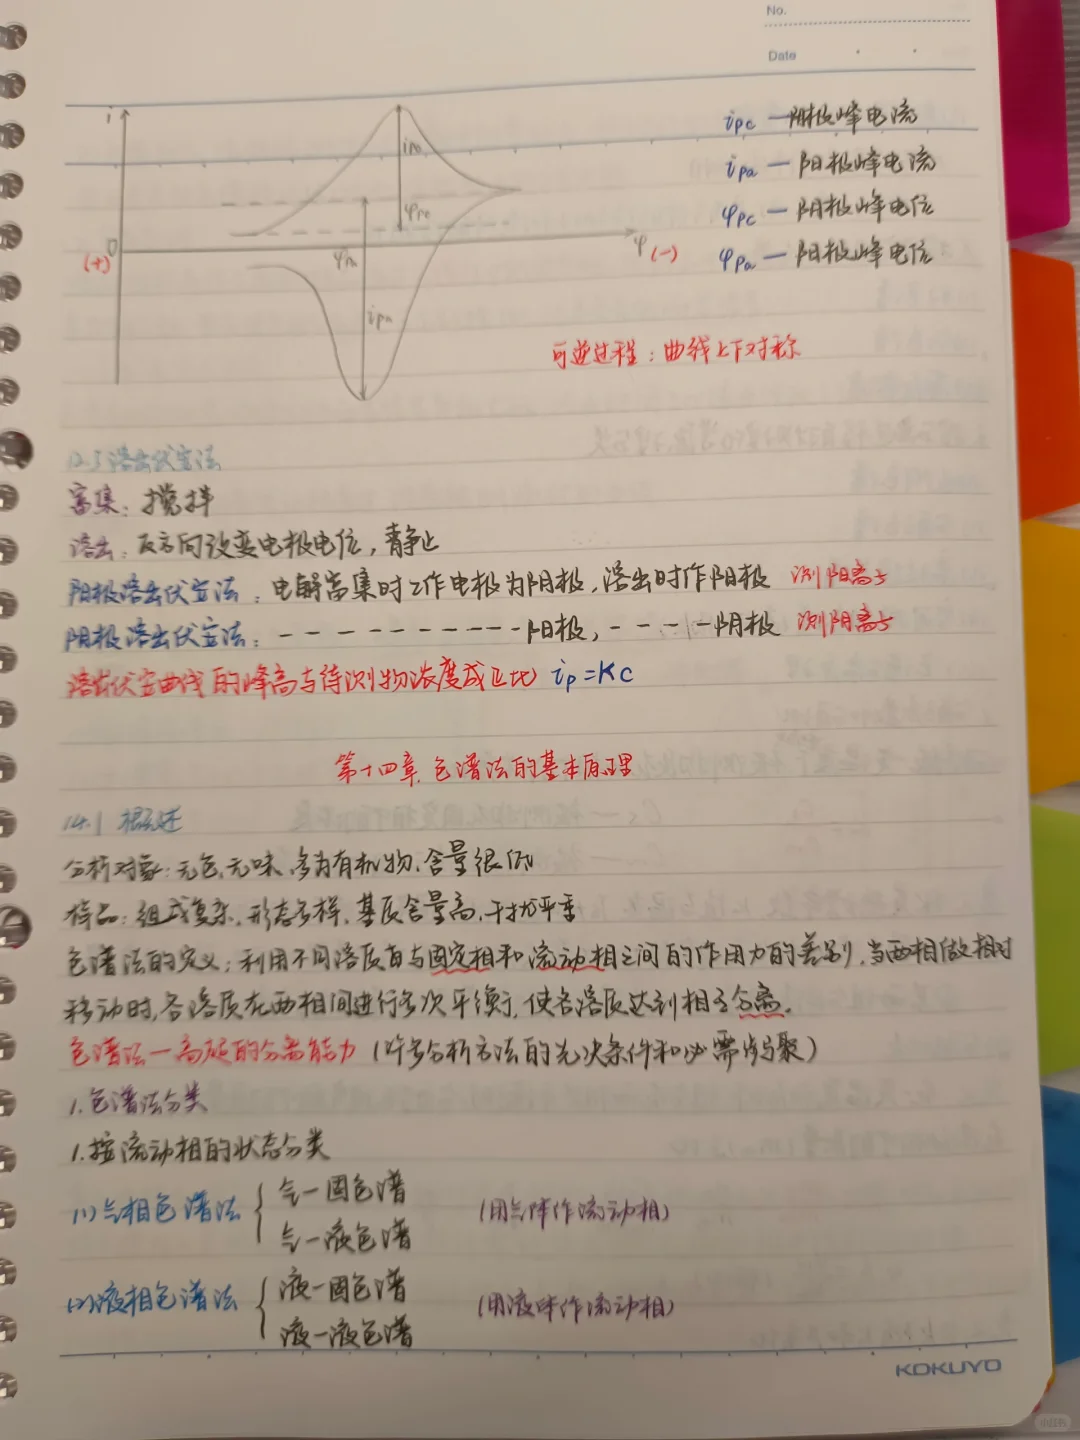 No.
Date
i
ipc — 阴极峰电流
ipa — 阳极峰电流
φpc — 阴极峰电位
φpa — 阳极峰电位
ipc
φpc
0
(+)
φ (-)
φpa
ipa
可逆过程：曲线上下对称
12.5 溶出伏安法
富集：搅拌
溶出：反方向改变电极电位，静止
阳极溶出伏安法：电解富集时工作电极为阴极，溶出时作阳极 测阳离子
阴极溶出伏安法：- - - - - - - - - - - 阳极，- - - - - 阴极 测阴离子
溶出伏安曲线的峰高与待测物浓度成正比 ip=Kc
第十四章 色谱法的基本原理
14.1 概述
分析对象：无色、无味、多为有机物、含量很低
样品：组成复杂、形态多样、基质含量高、干扰严重
色谱法的定义：利用不同溶质与固定相和流动相之间的作用力的差别，当两相做相对
移动时，各溶质在两相间进行多次平衡，使各溶质达到相互分离。
色谱法—高超的分离能力（许多分析方法的先决条件和必需步骤）
1.色谱法分类
1.按流动相的状态分类
(1)气相色谱法 { 气—固色谱 (用气体作流动相)
气—液色谱
(2)液相色谱法 { 液—固色谱 (用液体作流动相)
液—液色谱
KOKUYO
小红书